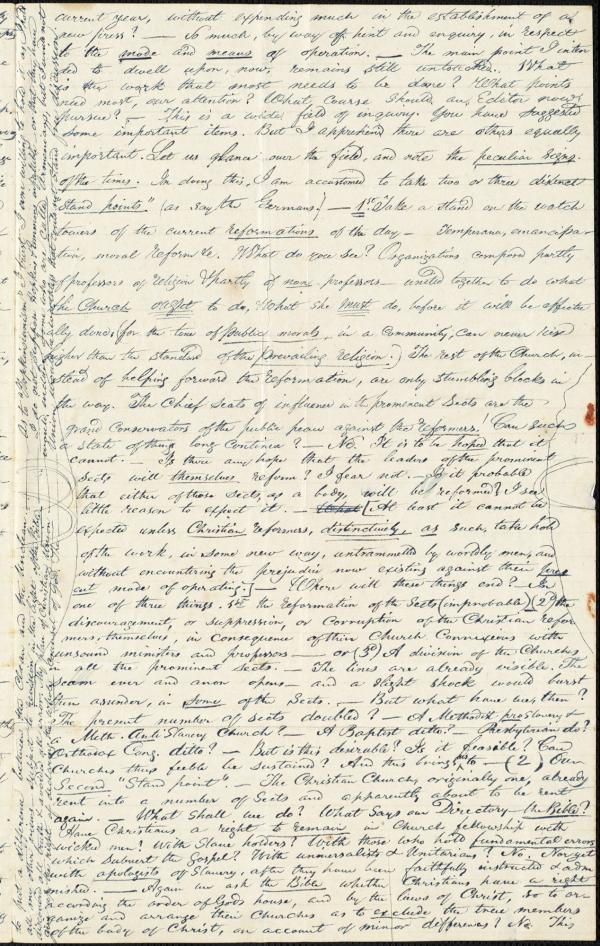 current year, without expending much in the establishment of a
new press? — So much, by way of hint and enquiry, in respect
to the mode and means of operation. — The main point I inten
ded to dwell upon, now, remains still untouched. What
is the work that most needs to be done? What points
need most, our attention? What course should an Editor now
pursue? — This is a wide field of inquiry. You have suggested
some important items. But I apprehend there are others equally
important. Let us glance over the field, and note the peculiar signs
of the times. In doing this, I am accustomed to take two or three distinct
"Stand points" (as say the Germans.) — 1st. Take a stand on the watch
towers of the current reformations of the day — Temperance, emancipa-
tion, moral reform &c. What do you see? Organizations composed partly
of professors of religion & partly of none professors united together to do what
the Church ought to do, What she must do, before it will be effectu
ally done, (for the tone of public morals, in a community, can never rise
higher than the standard of the prevailing religion.) The rest of the Church, in-
stead of helping forward the reformation, are only stumbling blocks in
the way. The Chief Seats of influence in the prominent Sects are the
grand Conservators of the public peace against the reformers. Can such
a state of things long continue? — No. It is to be hoped that it
cannot. Is there any hope that the leaders of the prominent
Sects will themselves reform? I fear not. — Is it probable
that either of those Sects, as a body, will be reformed? I see
little reason to expect it. — [At least it cannot be
expected unless Christian reformers, distinctively, as such, take hold
of the work, in some new way, untrammelled by worldly men, and
without encountering the prejudice now existing against their pres
ent mode of operating.] — Where will these things end? — In
one of three things. 1st the Reformation of the Sects (improbable) (2d) the
discouragement, or suppression, or Corruption of the Christian Refor
mers, themselves, in consequence of their Church Connexions with
unsound ministers and professors — or (3d) A division of the Churches
in all the prominent Sects. — The lines are already visible. The
seam ever and anon opens — and a slight shock would burst
them asunder, in some of the Sects. — But what have we, then?
The present number of sects doubled? — A Methodist proslavery &
a Meth. Anti Slavery Church? — A Baptist ditto? — Presbyterian do?
Orthodox Cong. ditto? — But is this desirable? Is it feasible? Can
Churches thus feeble be sustained? And this brings to — (2) Our
Second "Stand point". — The Christian Church, originally one, already
rent into a number of Sects and apparently about to be rent
again. — What shall we do? What says our Directory — the Bible?
Have Christians a right to remain in Church fellowship with
wicked men? With Slave holders? With those who hold fundamental errors
which Subvert the Gospel? With universalists & Unitarians? No. Nor yet
with apologists of Slavery, after they have been faithfully instructed & adm
nished. — Again we ask the Bible whether Christians have a right
according the order of Gods house, and by the laws of Christ, so to or-
ganize and arrange their Churches as to exclude the true members
of the body of Christ, on account of minor differences? No. This